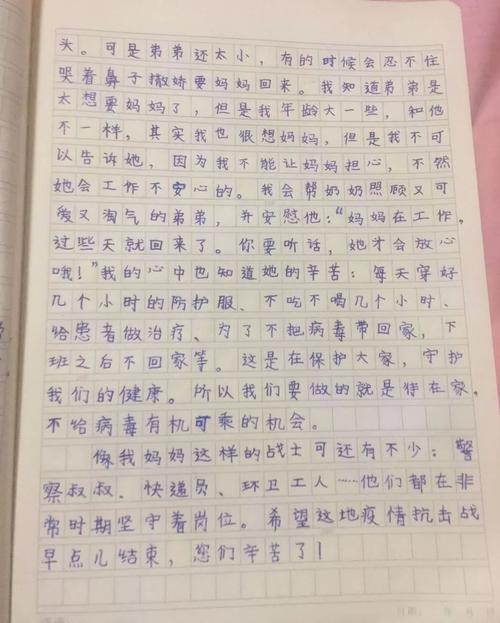 头。可是弟弟还太小，有的时候会忍不住
哭着鼻子撒娇要妈妈回来。我知道弟弟是
太想要妈妈了，但是我年龄大一些，和他
不一样，其实我也很想妈妈，但是我不可
以告诉她，因为我不能让妈妈担心，不然
她会工作不安心的。我会帮奶奶照顾又可
爱又淘气的弟弟，并安慰他：“妈妈在工作，
过些天就回来了。你要听话，她才会放心
哦！”我的心中也知道她的辛苦：每天穿好
几个小时的防护服、不吃不喝几个小时、
给患者做治疗、为了不把病毒带回家，下
班之后不回家等。这是在保护大家，守护
我们的健康。所以我们要做的就是待在家，
不给病毒有机可乘的机会。
像我妈妈这样的战士可还有不少：警
察叔叔、快递员、环卫工人……他们都在非
常时期坚守着岗位。希望这地疫情抗击战
早点儿结束，您们辛苦了！
日期： 年 月 日